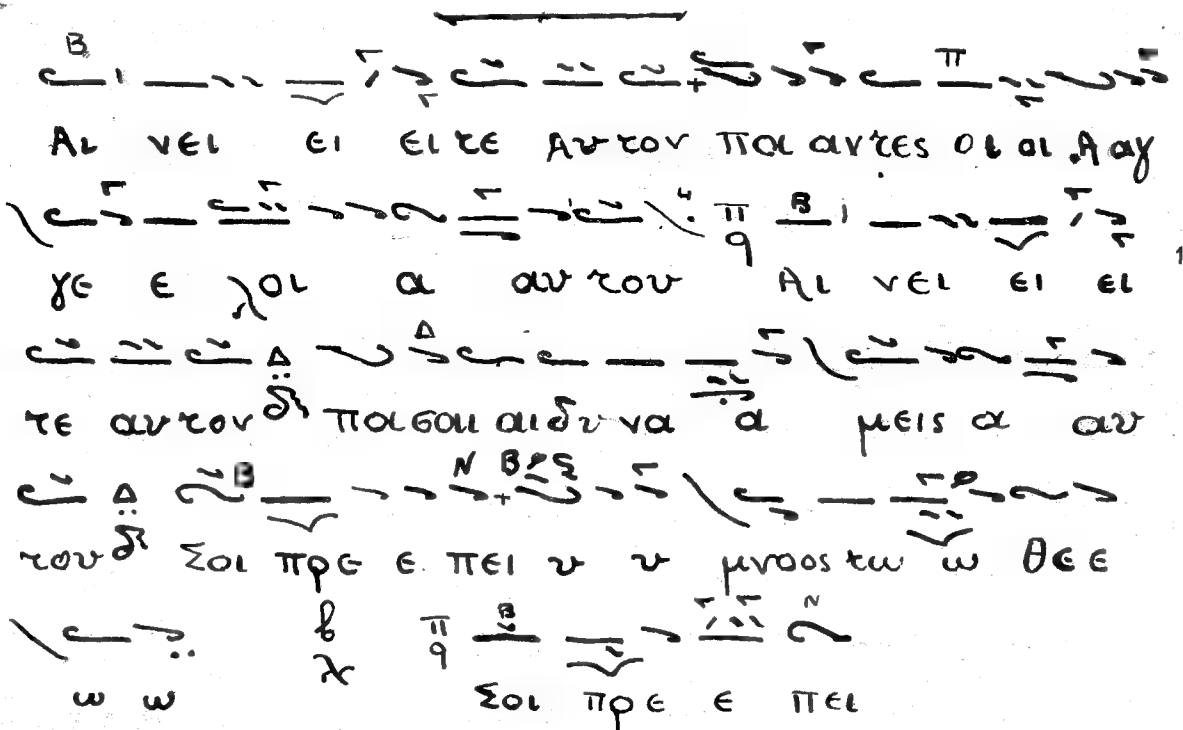 Αι νει ει ει τε Αυ τον παι αντες οι αι Α αγ
γε ε λοι α αυ του Αι νει ει ει
τε αυ τον πασαι αι δυ να α μεις α αυ
του Σοι πρε ε πει υ υ μνοος τω ω θε ε
ω ω Σοι πρε ε πει